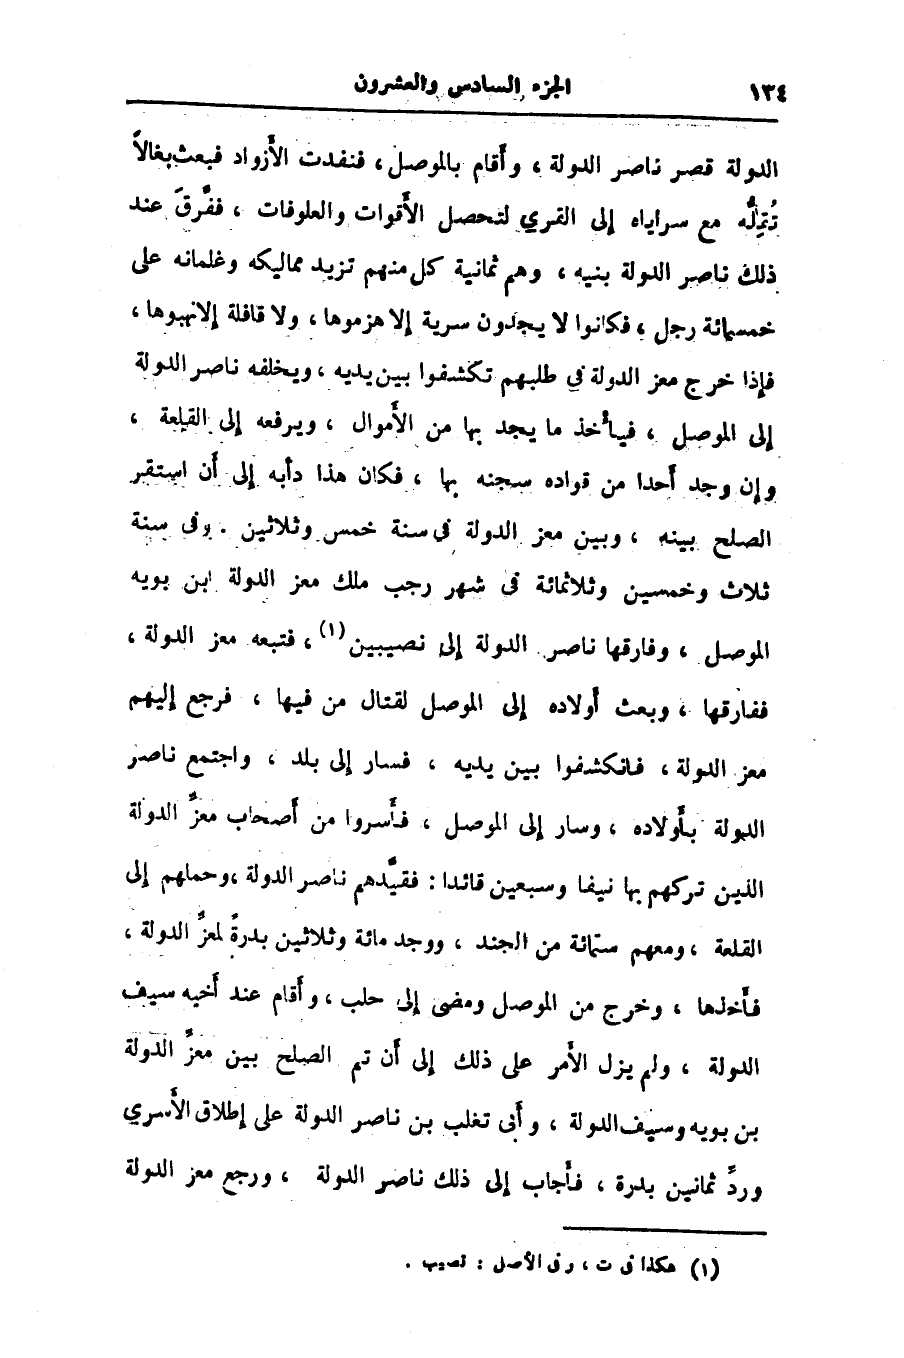 ١٣٤ الجزء السادس والعشرون
الدولة قصر ناصر الدولة ، وأقام بالموصل ، فنفدت الأزواد فبعث بغالاً
مع سراياه إلى القري لتحصل الأقوات والعلوفات ، ففَّرقَ عند
ذلك ناصر الدولة بنيه ، وهم ثمانية كل منهم تزيد مماليكه وغلمانه على
خمسمائة رجل ، فكانوا لا يجدون سرية إلا هزموها ، ولا قافلة إلا نهبوها ،
فإذا خرج معز الدولة في طلبهم تكشفوا بين يديه ، ويخلفه ناصر الدولة
إلى الموصل ، فيأخذ ما يجد بها من الأموال ، ويرفعه إلى القلعة ،
وإن وجد أحدا من قواده سجنه بها ، فكان هذا دأبه إلى أن استقر
الصلح بينه ، وبين معز الدولة في سنة خمس وثلاثين . وفى سنة
ثلاث وخمسين وثلاثمائة فى شهر رجب ملك معز الدولة ابن بويه
الموصل ، وفارقها ناصر الدولة إلى نصيبين (١) ، فتبعه معز الدولة ،
ففارقها ، وبعث أولاده إلى الموصل لقتال من فيها ، فرجع إليهم
معز الدولة ، فانكشفوا بين يديه ، فسار إلى بلد ، واجتمع ناصر
الدولة بأولاده ، وسار إلى الموصل ، فأسروا من أصحاب معزِّ الدولة
الذين تركهم بها نيفا وسبعين قائدا : فقيَّدهم ناصر الدولة ،وحملهم إلى
القلعة ، ومعهم ستمائة من الجند ، ووجد مائة وثلاثين بدرةً لمعزِّ الدولة ،
فأخذها ، وخرج من الموصل ومضى إلى حلب ، وأقام عند أخيه سيف
الدولة ، ولم يزل الأمر على ذلك إلى أن تم الصلح بين معزِّ الدولة
بن بويه وسيف الدولة ، وأبى تغلب بن ناصر الدولة على إطلاق الأسري
وردِّ ثمانين بدرة ، فأجاب إلى ذلك ناصر الدولة ، ورجع معز الدولة
(١) هكذا فى ت ، وفى الأصل : نصيب .